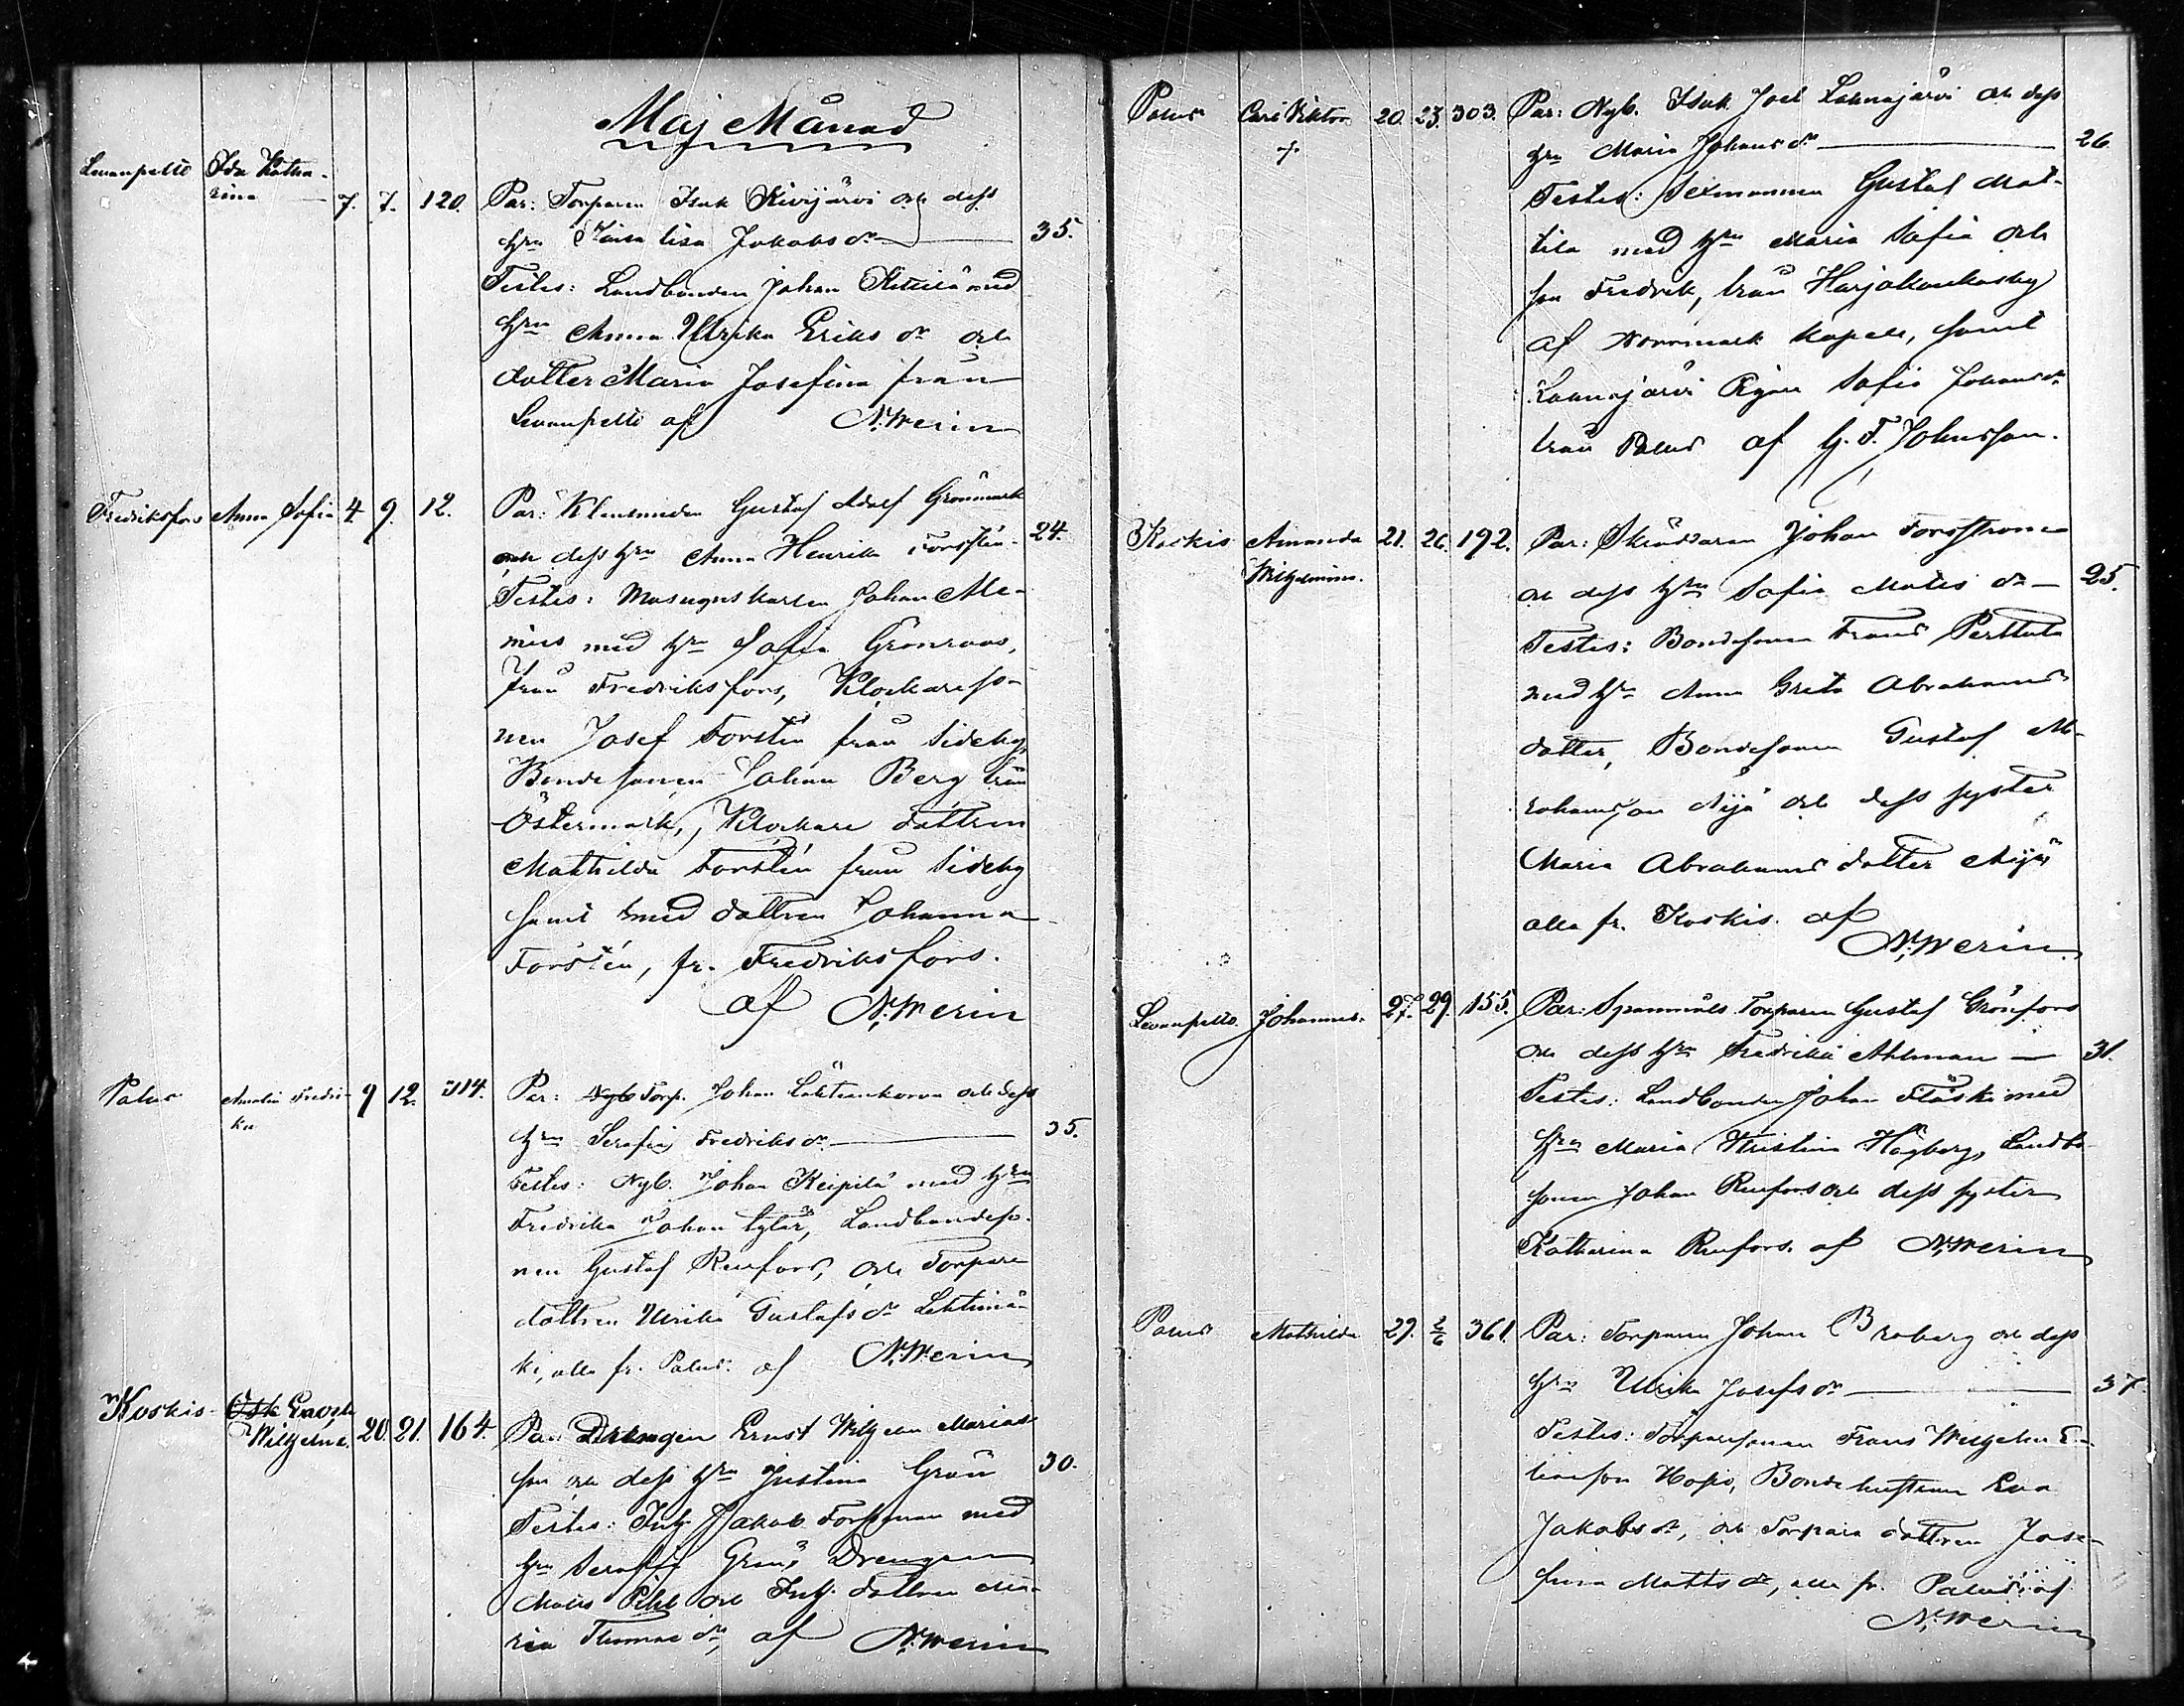 Maj Månad
Levanpelto Ida Katha-
rina 7. 7. 120. Par: Torparen Isak Kivijärvi och dess
hru Kaisa Lisa Jakobs dr 35.
Testes: Landbonden Johan Kittilä med
hru Anna Ulrika Eriks dr och
dotter Maria Josefina från
Levanpelto af N. Werin
Fredriksfors Anna Sofia 4. 9. 12. Par: Klensmeden Gustaf Adolf Grönmark
och dess hru Anna Henrika Forstén 24.
Testes: Masugnskarlen Johan Me-
nius med hru Sofia Grönroos,
från Fredriksfors, Klockareso-
nen Josef Forstén från Sideby,
Bondesonen Johan Berg från
Östermark, Klockare dottren
Mathilda Forstén från Sideby
samt smed dottren Johanna
Forstén, fr. Fredriksfors.
af N. Werin
Palus Amalia Fredri-
ka 9 12. 314. Par: Nyb Torp. Johan Lähteenkorva och dess
hru Serafia Fredriks dr 35.
Testes: Nyb. Johan Keipilä med hru
Fredrika Johan , Landbondeso-
nen Gustaf Renfors, och Torpare
dottren Ulrika Gustafs dr Lehtimä-
ki, alla fr. Palus: af N. Werin
Koskis Osk Enoch
Wilhelm. 20. 21. 164. Par: Drengen Ernst Wilhelm Marias
son och dess hru Justina Grön 30.
Testes: Inh. Jakob Forsman med
hru Serafia Grön, Drengen
Matts Pihl och Inh. dottren Ma-
ria Thomae dr, af N. Werin
Palus Carl Viktor 20. 23. 303. Par: Nyb. Isak Joel Lahnajärvi och dess
hru Maria Johans dr 26.
Testes: Sexmannen Gustaf Mat-
tila med hru Maria Sofia och
son Fredrik, från Harjakankasby
af Norrmark Kapell, samt
Lahnajärvi Pigan Sofia Johans dr
från Palus af G. F. Johnsson.
Koskis Amanda
Wilhelmina. 21. 26. 192. Par: Skräddaren Johan Forsström
och dess hru Sofia Matts dr 25.
Testes: Bondesonen Frans Perttula
med hru Anna Greta Abrahams
dotter, Bondesonen Gustaf Ab-
rahamsson Äijä och dess syster
Maria Abrahams dotter Äijä
alla fr. Koskis. af
N. Werin
Levanpelto. Johannes. 27. 29. 155. Par: Spannmåls Torparen Gustaf Grönfors
och dess hru Fredrika Ahlman 31.
Testes: Landbonden Johan Fläski med
hru Maria Kristina Högberg, Landbo
sonen Johan Renfors och dess syster
Katharina Renfors. af N. Werin
Palus Mathilda 29. 2/6 361. Par: Torparen Johan Broberg och dess
hru Ulrika Josefs dr 37.
Testes: Torparesonen Frans Wilhelm E-
liaeson Hopo, Bonde hustrun Eva
Jakobs dr, och Torpare dottren Jose-
fina Matts dr, alla fr. Palus: af
N. Werin